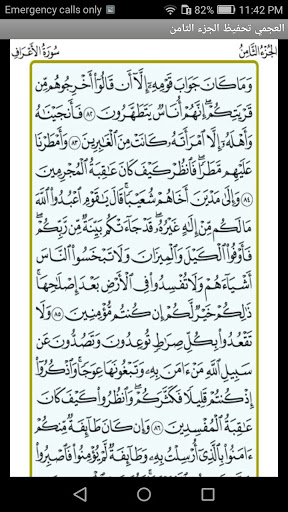 Emergency calls only
11:42 PM
العجمي تحفيظ الجزء الثامن
الجُزْءُ الثَّامِنُ
سُورَةُ الأَعْرَافِ
وَمَا كَانَ جَوَابَ قَوْمِهِ إِلَّا أَن قَالُوا أَخْرِجُوهُم مِّن
قَرْيَتِكُمْ إِنَّهُمْ أُنَاسٌ يَتَطَهَّرُونَ ٨٢ فَأَنجَيْنَاهُ
وَأَهْلَهُ إِلَّا امْرَأَتَهُ كَانَتْ مِنَ الْغَابِرِينَ ٨٣ وَأَمْطَرْنَا
عَلَيْهِم مَّطَرًا فَانظُرْ كَيْفَ كَانَ عَاقِبَةُ الْمُجْرِمِينَ
٨٤ وَإِلَىٰ مَدْيَنَ أَخَاهُمْ شُعَيْبًا قَالَ يَاقَوْمِ اعْبُدُوا اللَّهَ
مَا لَكُم مِّنْ إِلَٰهٍ غَيْرُهُ قَدْ جَاءَتْكُم بَيِّنَةٌ مِّن رَّبِّكُمْ
فَأَوْفُوا الْكَيْلَ وَالْمِيزَانَ وَلَا تَبْخَسُوا النَّاسَ
أَشْيَاءَهُمْ وَلَا تُفْسِدُوا فِي الْأَرْضِ بَعْدَ إِصْلَاحِهَا
ذَٰلِكُمْ خَيْرٌ لَّكُمْ إِن كُنتُم مُّؤْمِنِينَ ٨٥ وَلَا
تَقْعُدُوا بِكُلِّ صِرَاطٍ تُوعِدُونَ وَتَصُدُّونَ عَن
سَبِيلِ اللَّهِ مَنْ آمَنَ بِهِ وَتَبْغُونَهَا عِوَجًا وَاذْكُرُوا
إِذْ كُنتُمْ قَلِيلًا فَكَثَّرَكُمْ وَانظُرُوا كَيْفَ كَانَ
عَاقِبَةُ الْمُفْسِدِينَ ٨٦ وَإِن كَانَ طَائِفَةٌ مِّنكُمْ
آمَنُوا بِالَّذِي أُرْسِلْتُ بِهِ وَطَائِفَةٌ لَّمْ يُؤْمِنُوا فَاصْبِرُوا